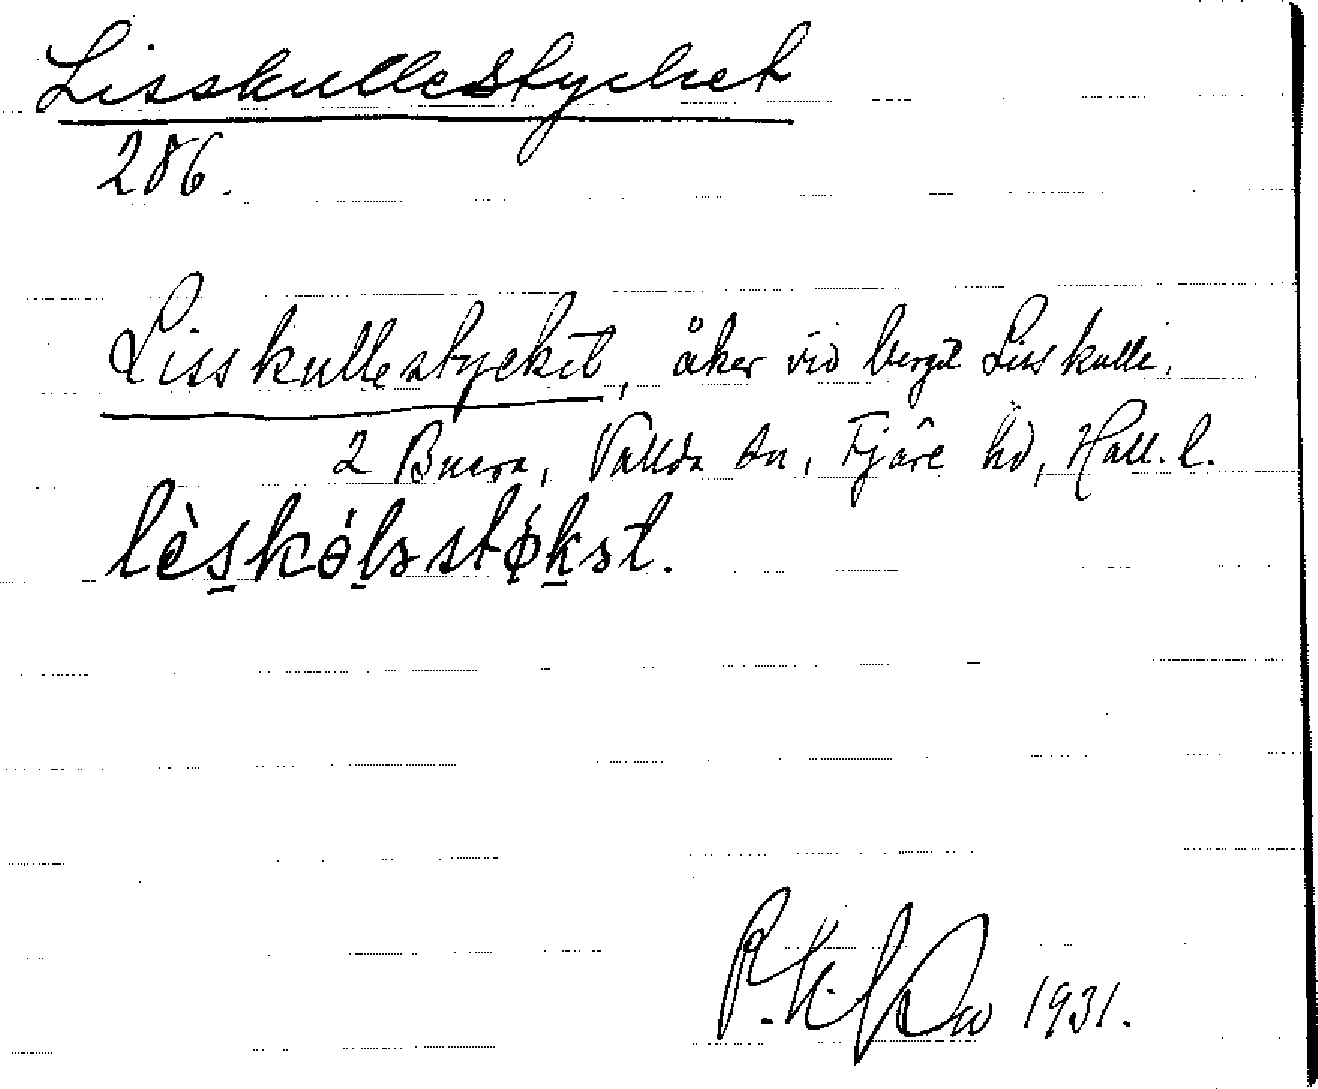 Lisskullestycket
286.
Lisskullestycket, åker vid berget Lisskulle.
2 Buera, Vallda sn, Fjäre hd, Hall. l.
lèskólsstǿkst.
1931.